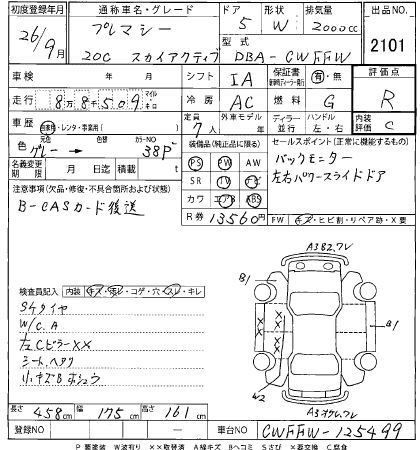 初度登録年月 通称車名・グレード ドア 形状 排気量 出品NO.
26/9月 プレマシー 5 W 2000cc 2101
20C スカイアクティブ 型式 DBA-CWFFW
車検 年 月 シフト IA 保証書 有・無 評価点
走行 8万8千509 マイル キロ 冷房 AC 燃料 G R
車歴 自家用・レンタ・事務用( ) 定員 7人 外車モデル ディーラー 並行 ハンドル 左・右 内装評価 C
色 元色 グレー → 色替 カラーNO 38P 装備品(純正品に限る) セールスポイント
名義変更期限 月 日迄 積載 t PS PW AW バックモニター
注意事項(欠品・修復・不具合箇所および状態) SR TV ナビ 左右パワースライドドア
B-CASカード後送 カワ エアB ABS
R券 13560円 FW キズ・ヒビ割・リペア跡・X要
A3B2.フレ
B1
B1
検査員記入 内装 キズ・汚レ・コゲ・穴・スレ・キレ
S4タイヤ
W/C.A
左Cピラーxx
シート.ヘタク
小キズBホシュウ
W2
A3
長さ 458cm 幅 175cm 高さ 161cm
登録NO — 車台NO CWFFW-125499
P 要塗装 W波有り ××取替済 A線キズ Bヘコミ Sさび ×要交換 C腐食